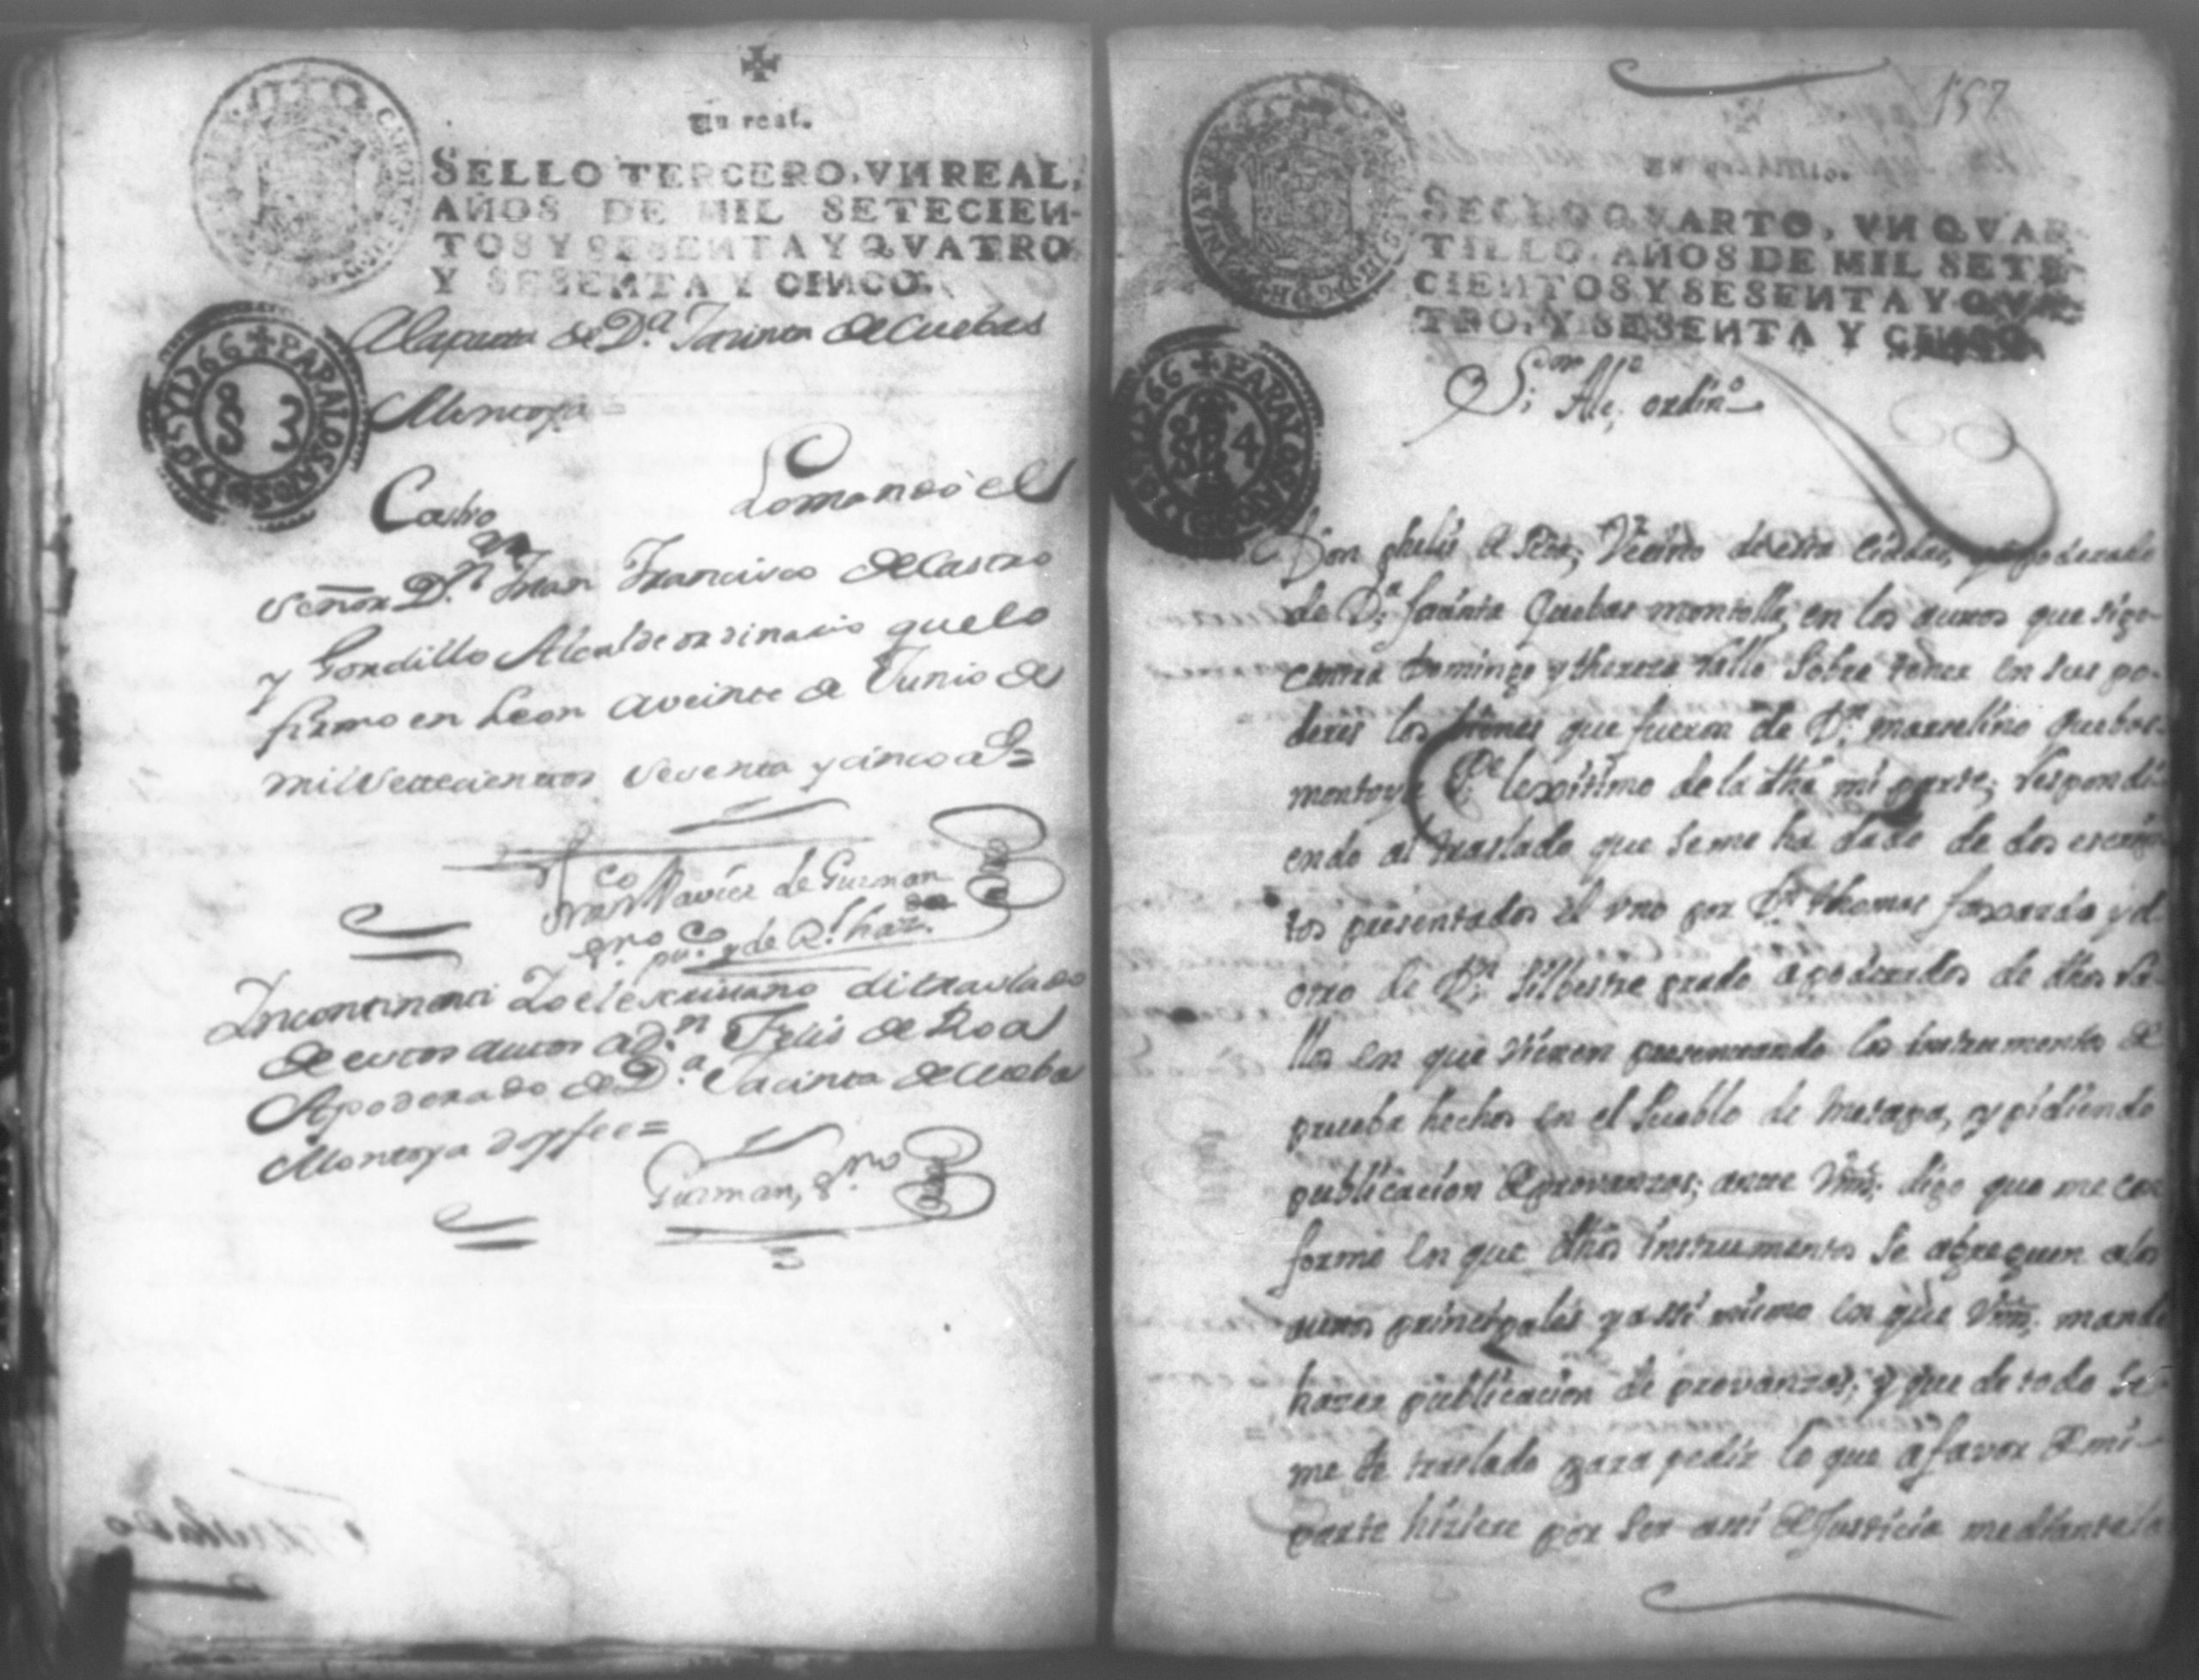 Un real.
SELLO TERCERO, VN REAL,
AÑOS DE MIL SETECIEN-
TOS Y SESENTA Y QVATRO
Y SESENTA Y CINCO.
PARA LOS AÑOS DE 1765 Y 1766
S 3
A la parte de D.ª Jacinta de Cuebas
Montoya =
Castro
Lo mando el
señor D.n Juan Francisco de Castro
y Gordillo Alcalde ordinario que lo
firmo en Leon a veinte de Junio de
mil settecientos sesenta y cinco a.s =
Fran.co Xavier de Guzman
ss.no pu.co y de R.l haz.da
Incontinenti Yo el escrivano di traslado
de estos autos a d.n Felis de Roa
Apoderado de D.ª Jacinta de Cueba
Montoya doy fee =
Guzman, s.no
157
SELLO QVARTO, VN QVAR-
TILLO, AÑOS DE MIL SETE-
CIENTOS Y SESENTA Y QVA-
TRO, Y SESENTA Y CINCO.
PARA LOS AÑOS DE 1765 Y 1766
S 4
S.or Al.e ordin.o
Don phelis de Roa, Vecino de esta Ciudad, y apoderado
de D.ª Jacinta Quebas montolla, en los autos que sigo
contra Domingo y thereza Vallo Sobre tener en sus po-
deres los bienes que fueron de D.n marselino Quebas
montoya P.e lexitimo de la dha mi parte; Respondi-
endo al traslado que se me ha dado de dos escri-
tos presentados el vno por D.n thomas faxardo y el
otro de D.n Silbestre prado apoderados de dhos Va-
llos en que vienen presentando los instrumentos de
prueba hechos en el Pueblo de Metapa, y pidiendo
publicacion de provanzas; ante Vmd. digo que me con
forme en que dhos instrumentos se agreguen a los
autos principales y assi mismo en que Vmd. mande
hazer publicacion de provanzas; y que de todo se
me de traslado para pedir lo que a favor de mi
parte hiziere por ser assi de Justicia mediante la